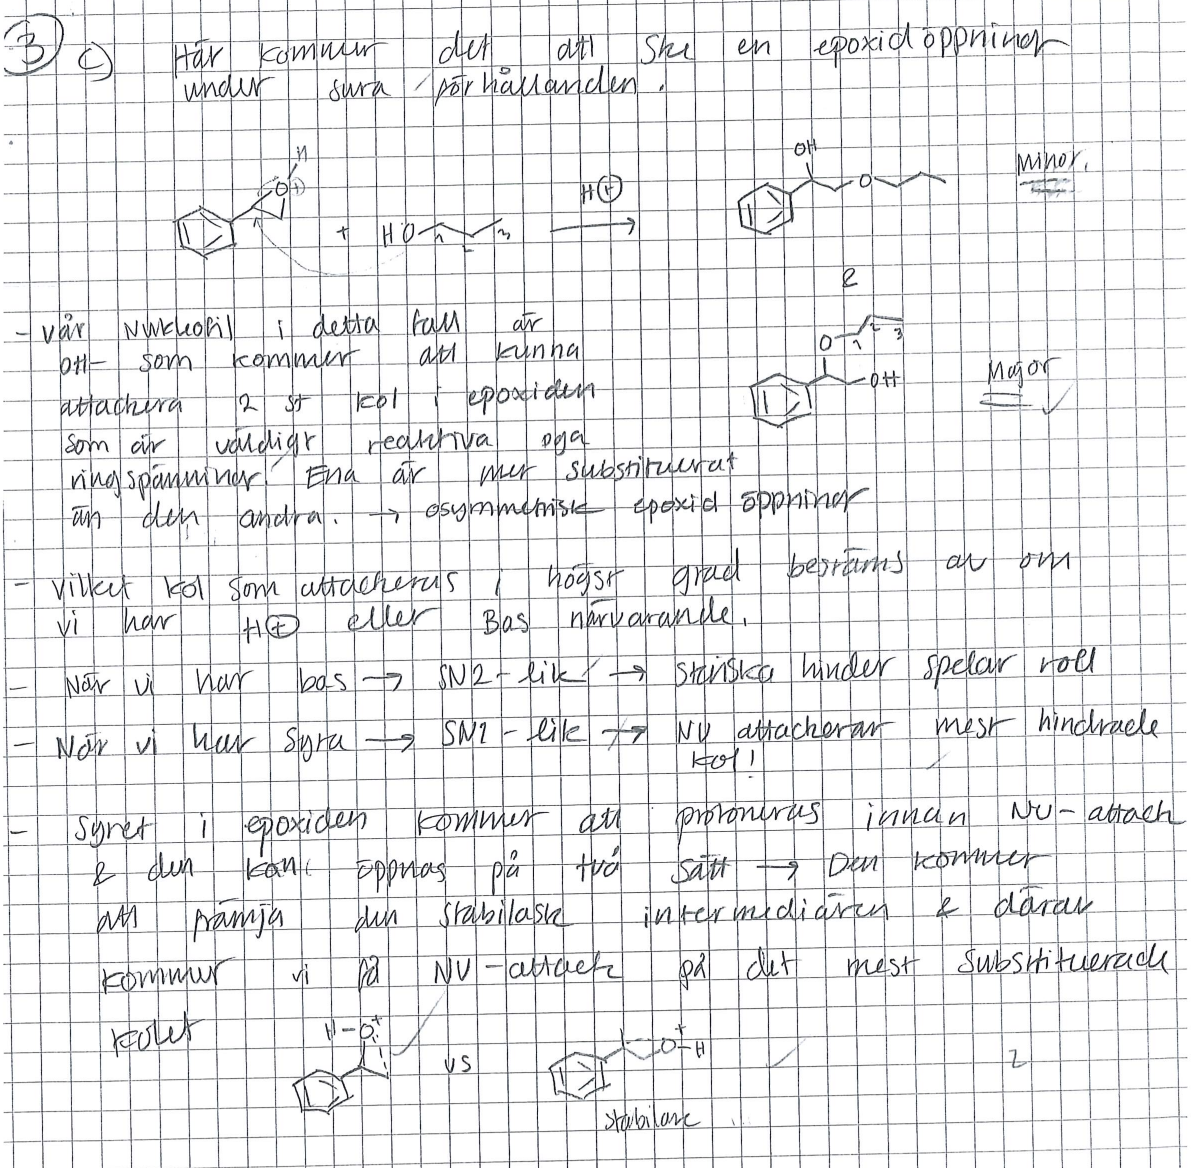 3 c) Här kommer det att ske en epoxidöppning
under sura förhållanden.
H
O
+ HO 1 2 3
H⊕
OH
O
Minor.
&
O 1 2 3
OH
Major
- vår Nukleofil i detta fall är
OH- som kommer att kunna
attachera 2 st kol i epoxiden
som är väldigt reaktiva pga
ringspänning! Ena är mer substituerat
än den andra. → osymmetrisk epoxid öppning
- vilket kol som attacheras i högst grad bestäms av om
vi har H⊕ eller Bas närvarande.
- När vi har bas → SN2-lik → steriska hinder spelar roll
- När vi har syra → SN1-lik → NU attacherar mest hindrade
kol!
- Syret i epoxiden kommer att protoneras innan NU-attack
& den kan öppnas på två sätt → Den kommer
att främja den stabilaste intermediären & därav
kommer vi få NU-attack på det mest substituerade
kolet
H-O+
vs
O+-H
stabilare
2